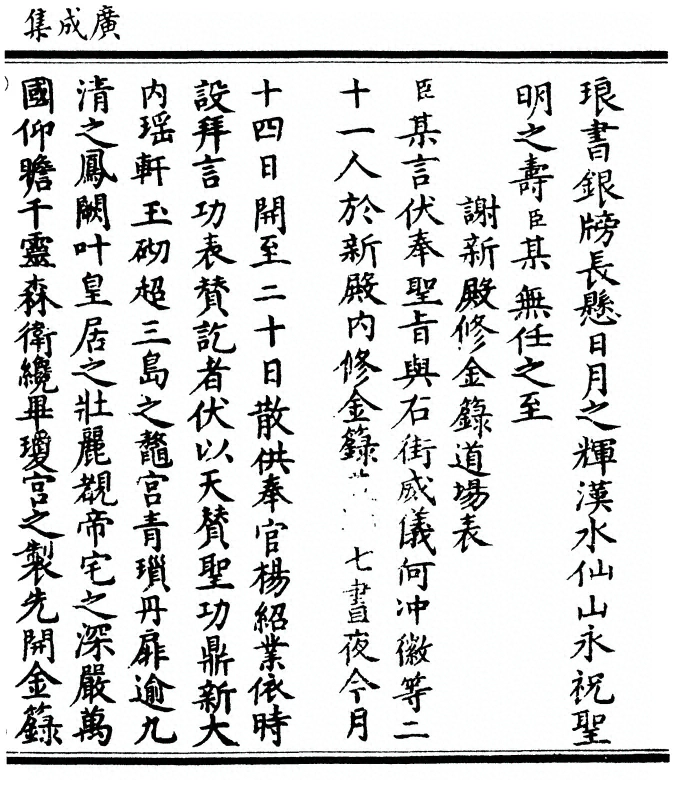 廣成集
琅書銀牓長懸日月之輝漢水仙山永祝聖
明之壽臣某無任之至
謝新殿修金籙道場表
臣某言伏奉聖旨與右街威儀何冲徽等二
十一人於新殿内修金籙七晝夜今月
十四日開至二十日散供奉官楊紹業依時
設拜言功表賛訖者伏以天賛聖功鼎新大
内瑶軒玉砌超三島之鼇宫青瑣丹扉逾九
清之鳳闕叶皇居之壯麗覩帝宅之深嚴萬
國仰瞻千靈森衛纔畢瓊宫之製先開金籙